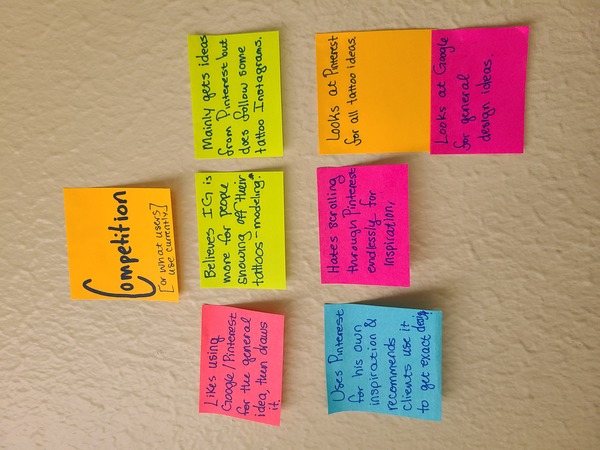 Competition
[or what users
use currently]
Likes using
Google/Pinterest
for the general
idea, then draws
it.
Believes IG is
more for people
showing off their
tattoos - modeling.
Mainly gets ideas
from Pinterest but
does follow some
tattoo Instagrams.
Uses Pinterest
for his own
inspiration &
recommends
clients use it
to get exact design.
Hates scrolling
through Pinterest
endlessly for
inspiration,
Looks at Pinterest
for all tattoo ideas.
Looks at Google
for general
design ideas.